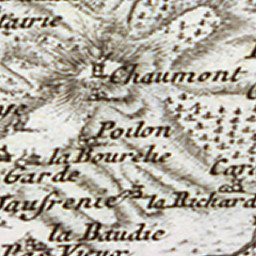 tairie
Chaumont
Poilon
la Bourelie
Garde
Car
Jaufrenie
la Richard
la Baudie
Vieux